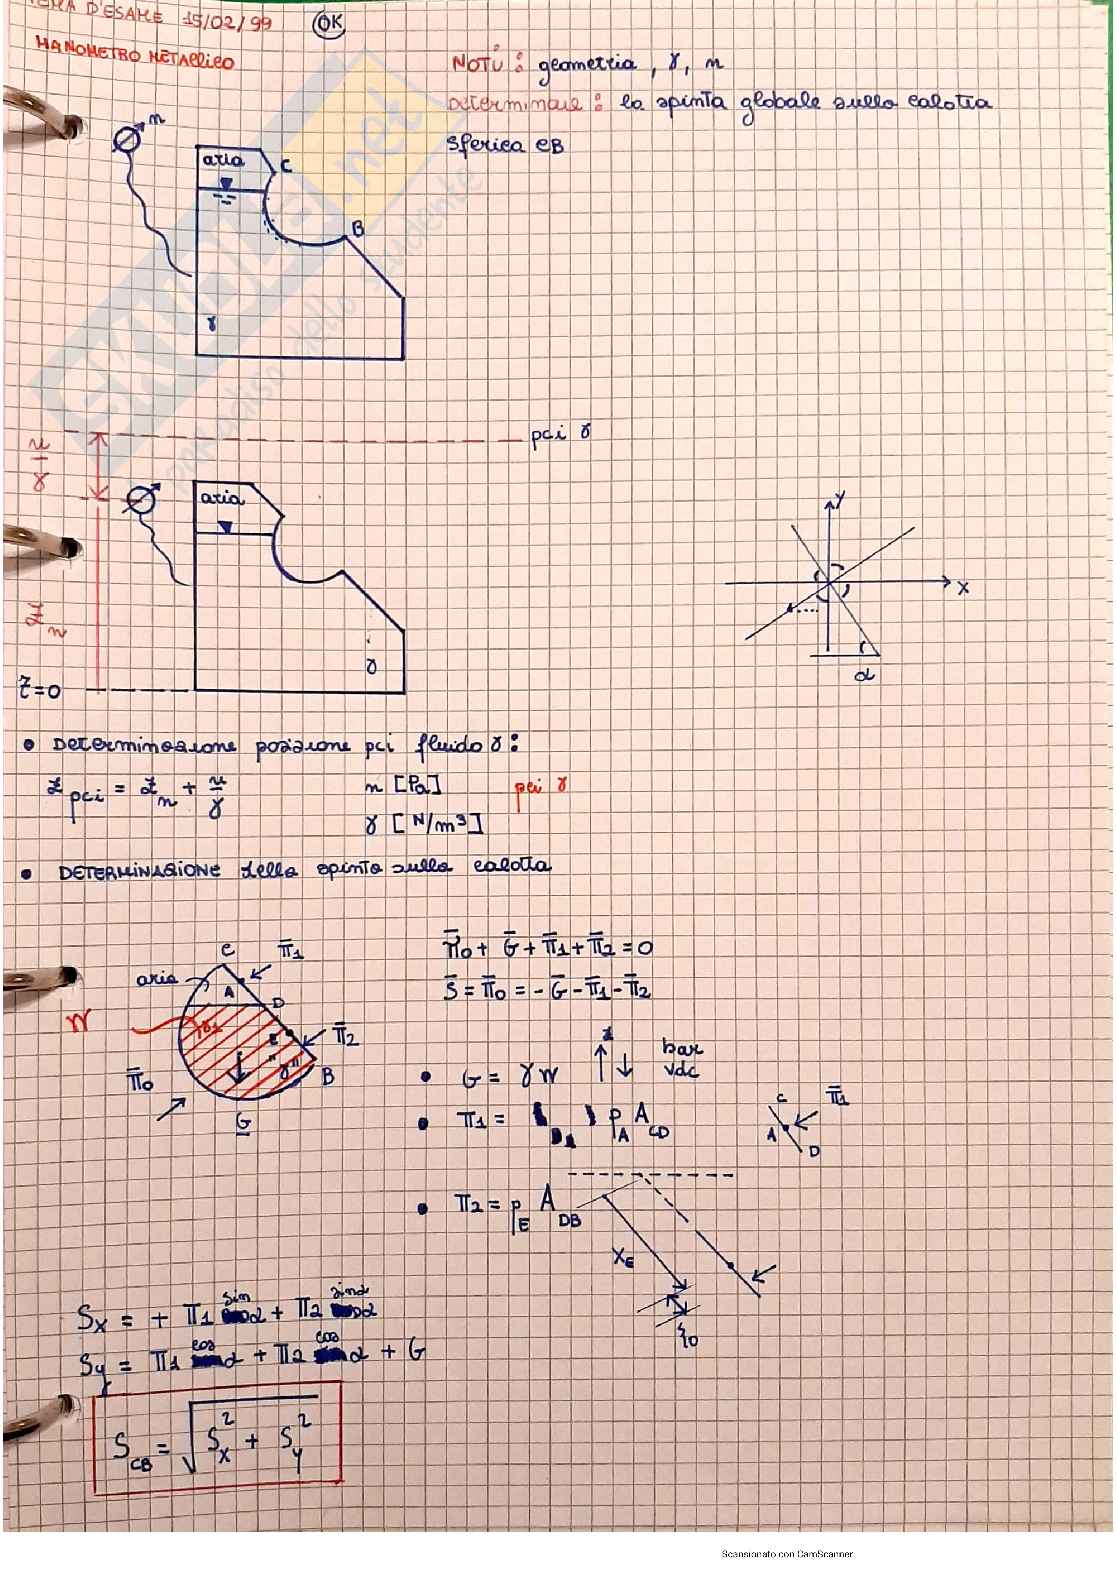 TEMA D'ESAME 15/02/99 OK
MANOMETRO METALLICO
NOTI: geometria, γ, n
Determinare: la spinta globale sulla calotta
sferica CB
n
aria
C
B
γ
n/γ
pci γ
aria
Y
X
α
Z_n
γ
Z=0
• Determinazione posizione pci fluido γ:
z_pci = z_n + n/γ n [Pa] pci γ
γ [N/m³]
• DETERMINAZIONE della spinta sulla calotta
C Π̄1
aria
A
D
E
W
Π̄2
"γ"
B
Π̄0
G
Π̄0 + Ḡ + Π̄1 + Π̄2 = 0
S̄ = Π̄0 = -Ḡ - Π̄1 - Π̄2
z
bar
vdc
• G = γW
• Π1 = p_A A_CD
C Π̄1
A
D
• Π2 = p_E A_DB
X_E
ξ0
Sx = + Π1 sin α + Π2 sin α
Sy = Π1 cos α + Π2 cos α + G
S_CB = √(Sx² + Sy²)
Scansionato con CamScanner
SKUOLA.net
paradiso dello studente